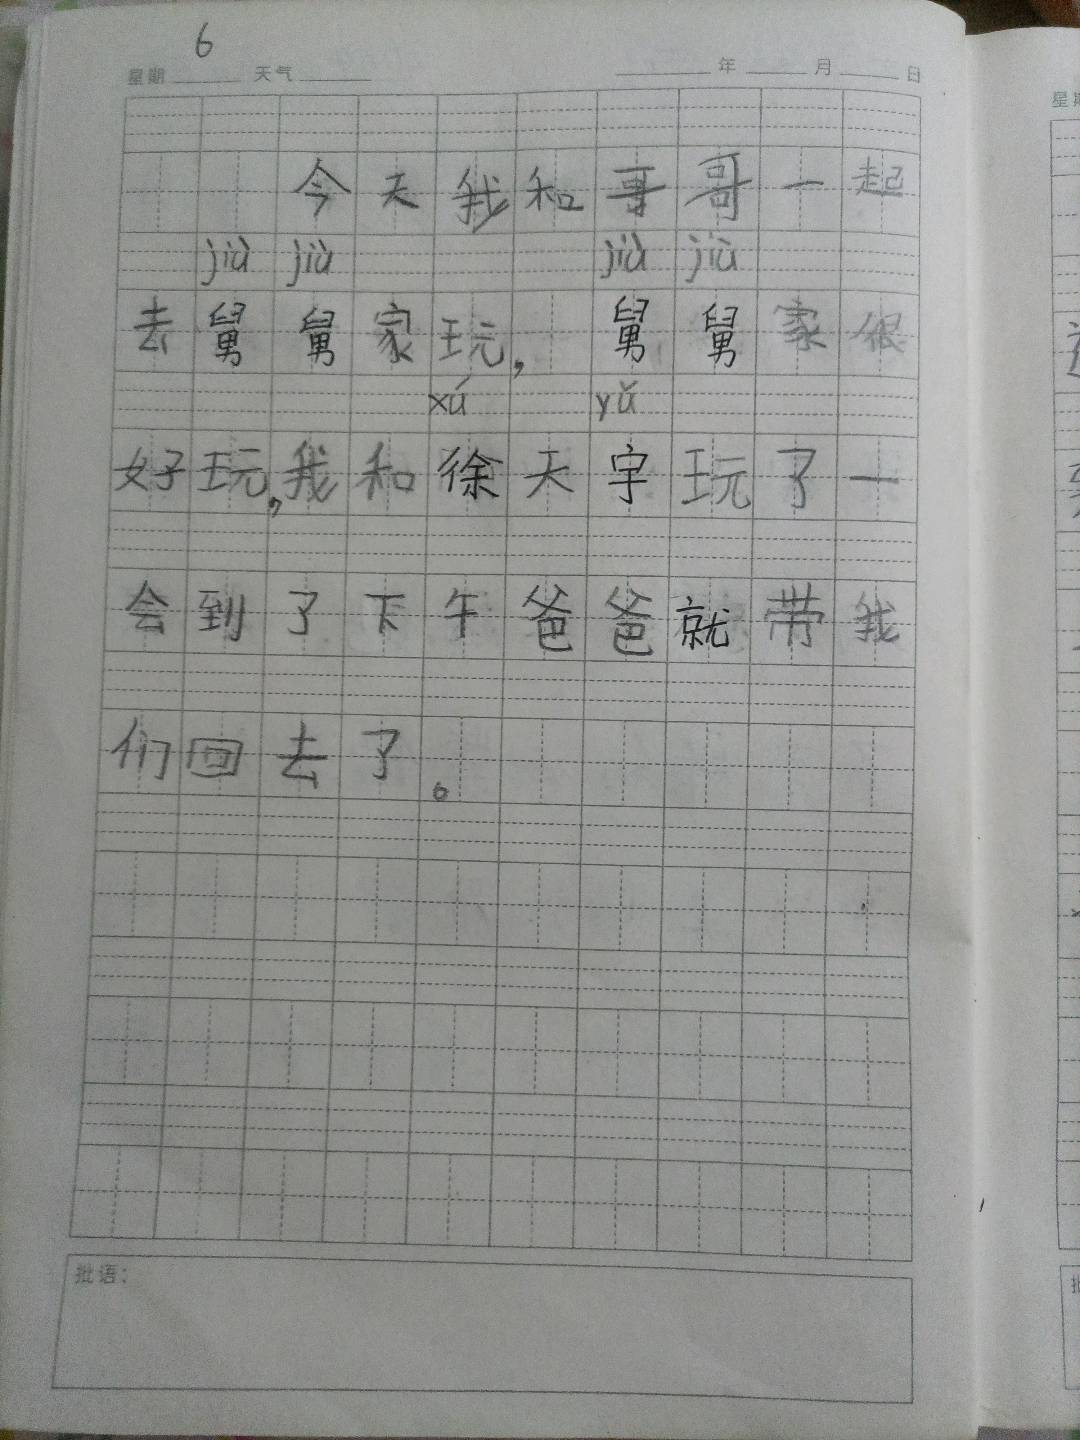 6
星期 天气 年 月 日
今天我和哥哥一起
jiù jiù jiù jiù
去舅舅家玩,舅舅家很
xú yǔ
好玩,我和徐天宇玩了一
会到了下午爸爸就带我
们回去了。
批语: